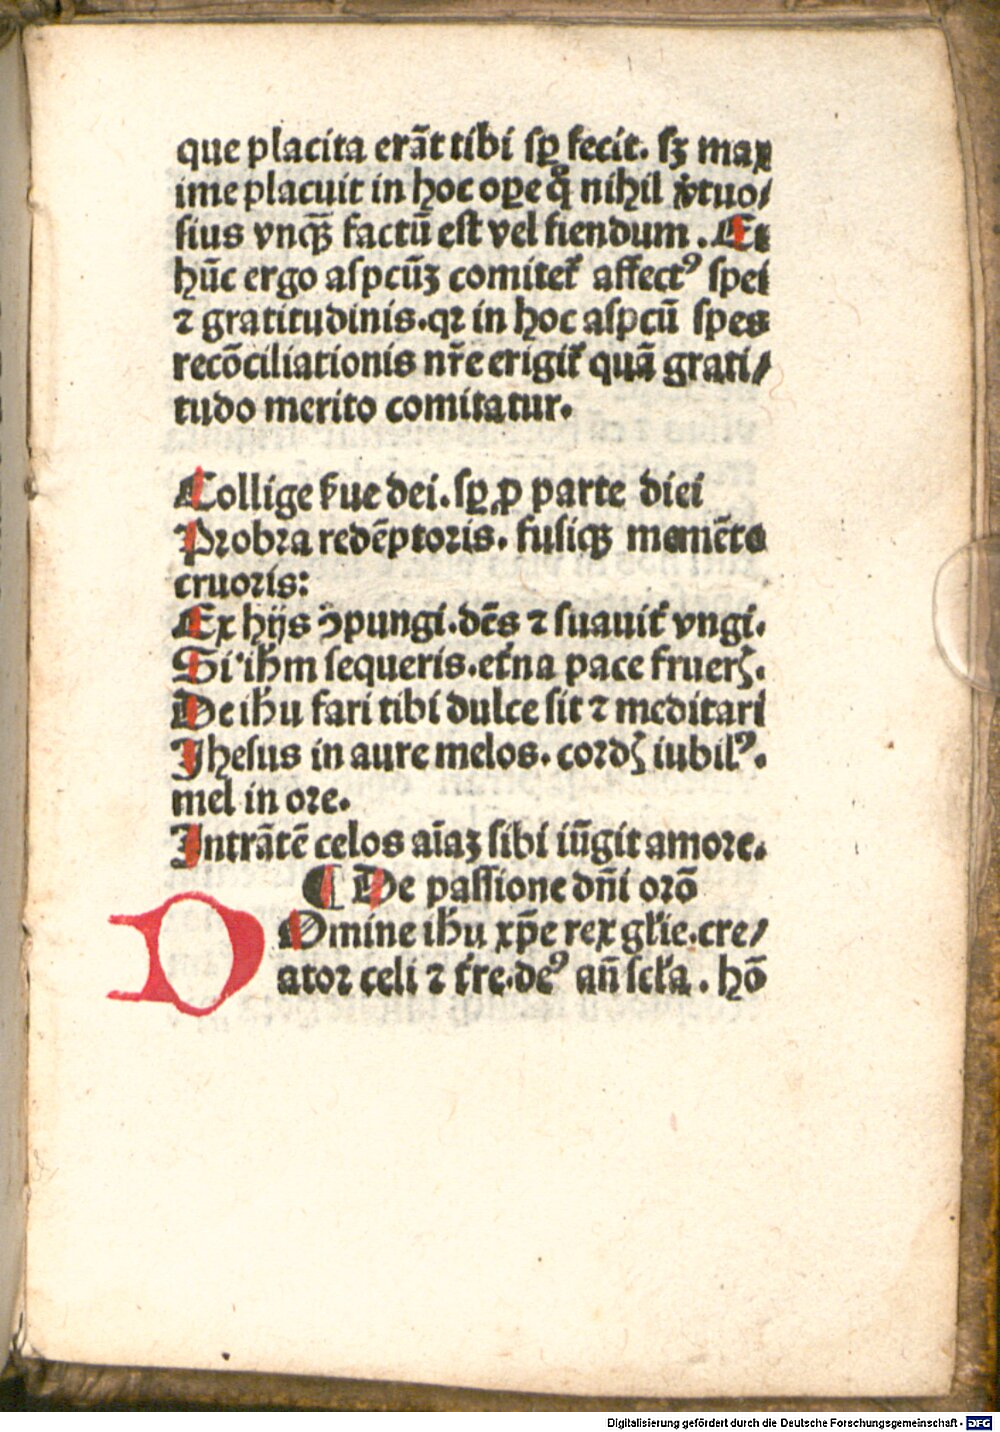 que placita erãt tibi sꝑ fecit. sꝫ max
ime placuit in hoc oꝑe qͥ nihil v̾tuo/
sius vnqꝫ̃ factũ est vel fiendum. Et
hũc ergo aspcũꝫ comitet᷑ affectꝰ spei
⁊ gratitudinis. qꝛ in hoc aspcũ spes
recõciliationis nr̃e erigit᷑ quã grati/
tudo merito comitatur.
Collige s̾ue dei. sꝑ ꝓ parte diei
Probra redẽptoris. fusiqꝫ memẽto
cruoris:
Ex hijs ꝯpungi. dẽs ⁊ suauit᷑ vngi.
Si ihm̃ sequeris. et̾na pace fruerꝭ.
De ihũ fari tibi dulce sit ⁊ meditari
Jhesus in aure melos. cordꝭ iubilꝰ.
mel in ore.
Intrãtẽ celos aĩaꝫ sibi iũgit amore.
¶ De passione dñi orõ
DOmine ihũ xp̃e rex gl̃ie. cre/
ator celi ⁊ t̾re. deꝰ añ sc̃la. hõ
Digitalisierung gefördert durch die Deutsche Forschungsgemeinschaft - DFG